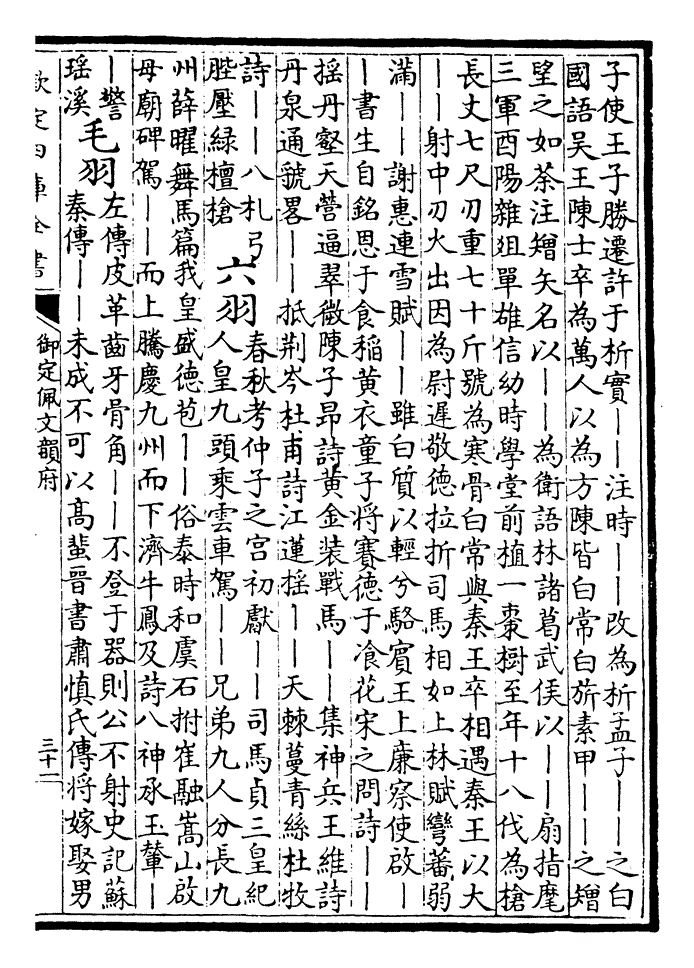 子使王子勝遷許于析實――注時――改為析孟子――之白
國語吳王陳士卒為萬人以為方陳皆白常白旂素甲――之矰
望之如荼注矰矢名以――為衛語林諸葛武侯以――扇指麾
三軍酉陽雜俎單雄信幼時學堂前植一棗樹至年十八伐為槍
長丈七尺刃重七十斤號為寒骨白常與秦王卒相遇秦王以大
――射中刃火出因為尉遲敬德拉折司馬相如上林賦彎蕃弱
滿――謝惠連雪賦――雖白質以輕兮駱賓王上廉察使啟―
―書生自銘恩于食稻黄衣童子將賽德于飡花宋之問詩――
揺丹壑天營逼翠微陳子昂詩黄金装戰馬――集神兵王維詩
丹泉通虢畧――抵荆岑杜甫詩江蓮揺――天棘蔓青絲杜牧
詩――八札弓
脞壓緑檀槍
六羽
春秋考仲子之宫初獻――司馬貞三皇紀
人皇九頭乘雲車駕――兄弟九人分長九
州薛曜舞馬篇我皇盛德苞――俗泰時和虞石拊崔融嵩山啟
母廟碑駕――而上騰慶九州而下濟牛鳳及詩八神承玉輦―
―警
瑶溪
毛羽
左傳皮革齒牙骨角――不登于器則公不射史記蘇
秦傳――未成不可以高蜚晉書肅慎氏傳將嫁娶男
欽定四庫全書
御定佩文韻府
三十一